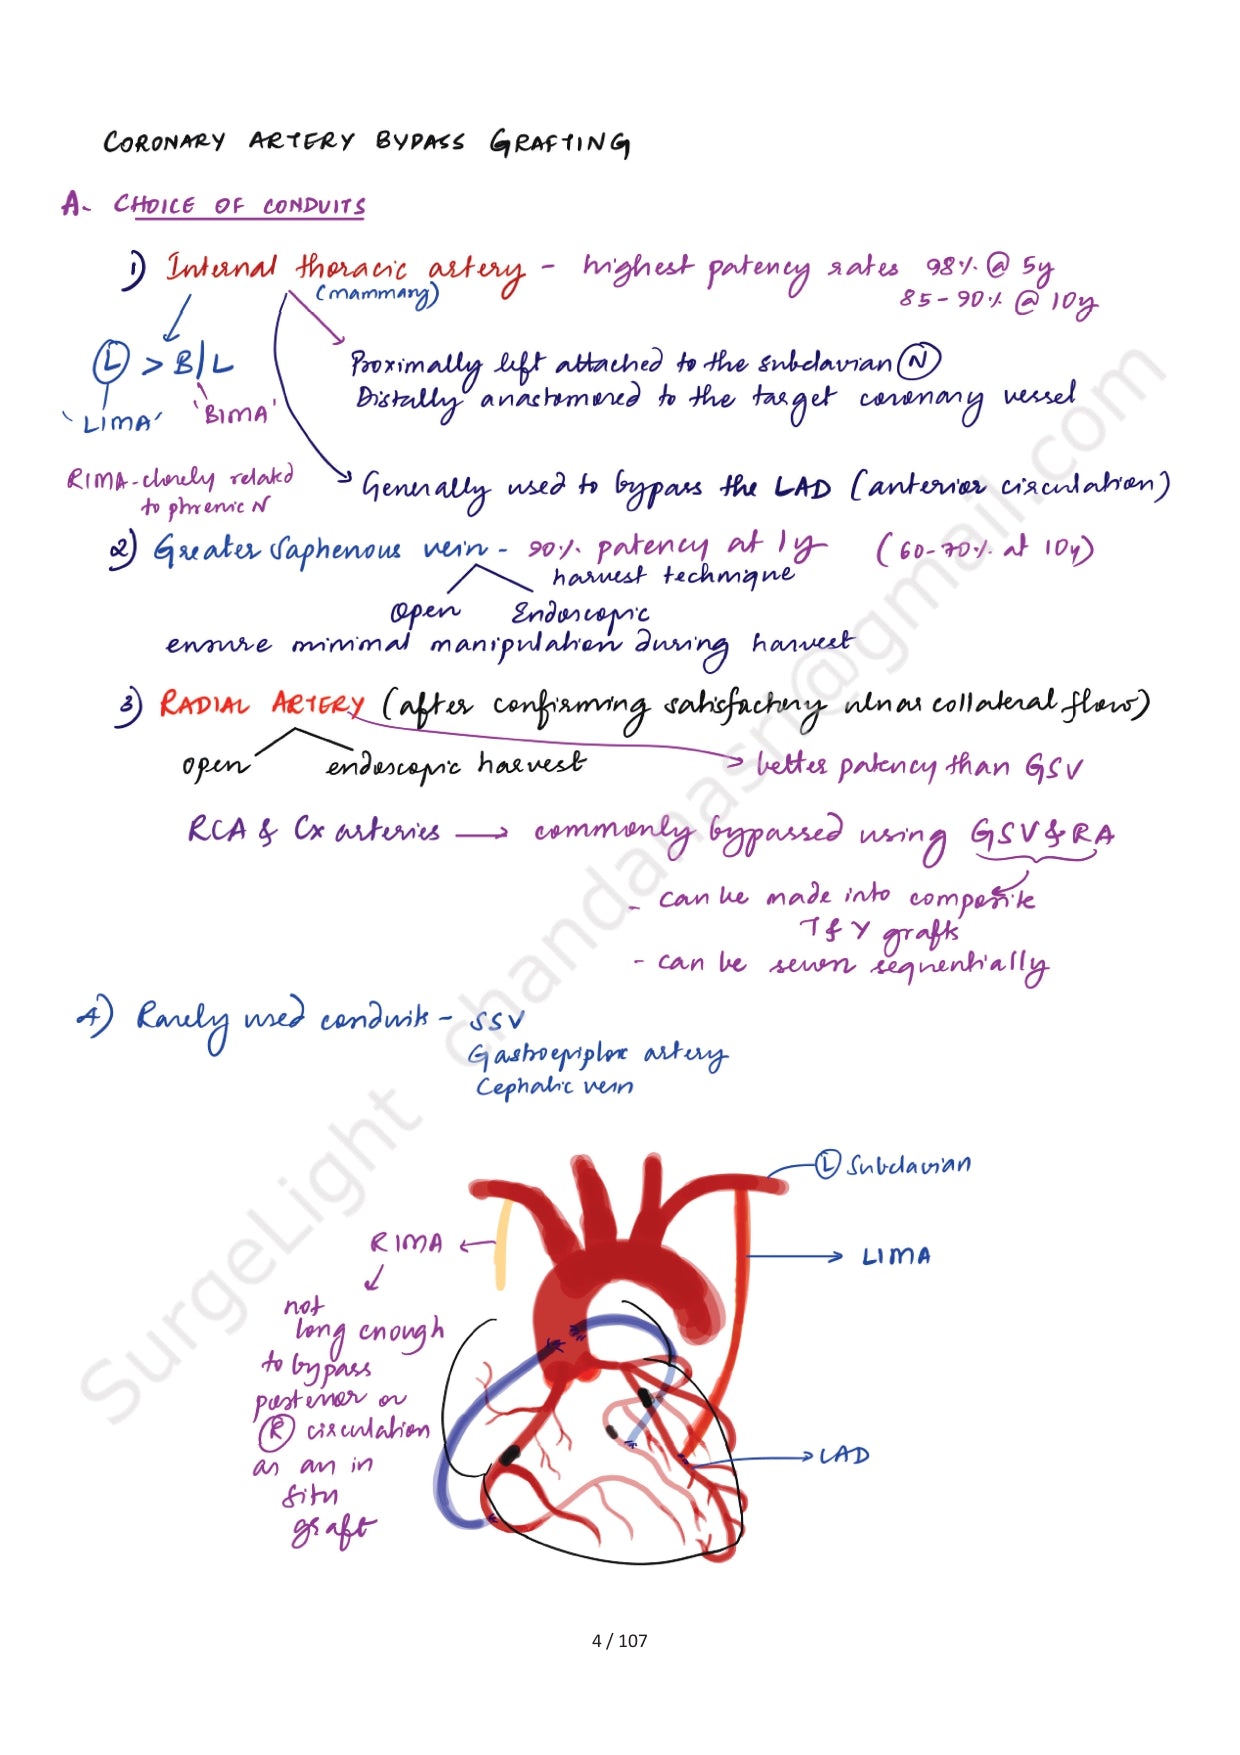 CORONARY ARTERY BYPASS GRAFTING
A. CHOICE OF CONDUITS
1) Internal thoracic artery - highest patency rates 98% @ 5y
(mammary)
85-90% @ 10y
Ⓛ > B/L
'LIMA' 'BIMA'
Proximally left attached to the subclavian Ⓝ
Distally anastomosed to the target coronary vessel
RIMA - closely related
to phrenic N
Generally used to bypass the LAD (anterior circulation)
2) Greater Saphenous vein - 90% patency at 1y (60-70% at 10y)
harvest technique
Open Endoscopic
ensure minimal manipulation during harvest
3) RADIAL ARTERY (after confirming satisfactory ulnar collateral flow)
open endoscopic harvest
better patency than GSV
RCA & Cx arteries → commonly bypassed using GSV & RA
- can be made into composite
T & Y grafts
- can be sewn sequentially
4) Rarely used conduits - SSV
Gastroepiplox artery
Cephalic vein
Ⓛ Subclavian
RIMA
LIMA
not
long enough
to bypass
posterior or
Ⓡ circulation
as an in
situ
graft
LAD
SurgeLight chandanasri@gmail.com
4 / 107